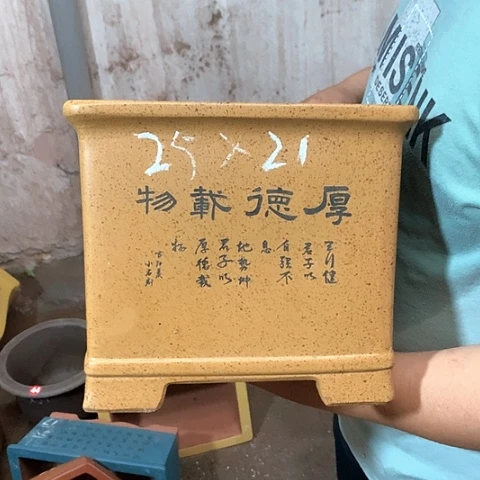 25×21
厚德載物
天行健
君子以
自強不
息
地勢坤
君子以
厚德載
物